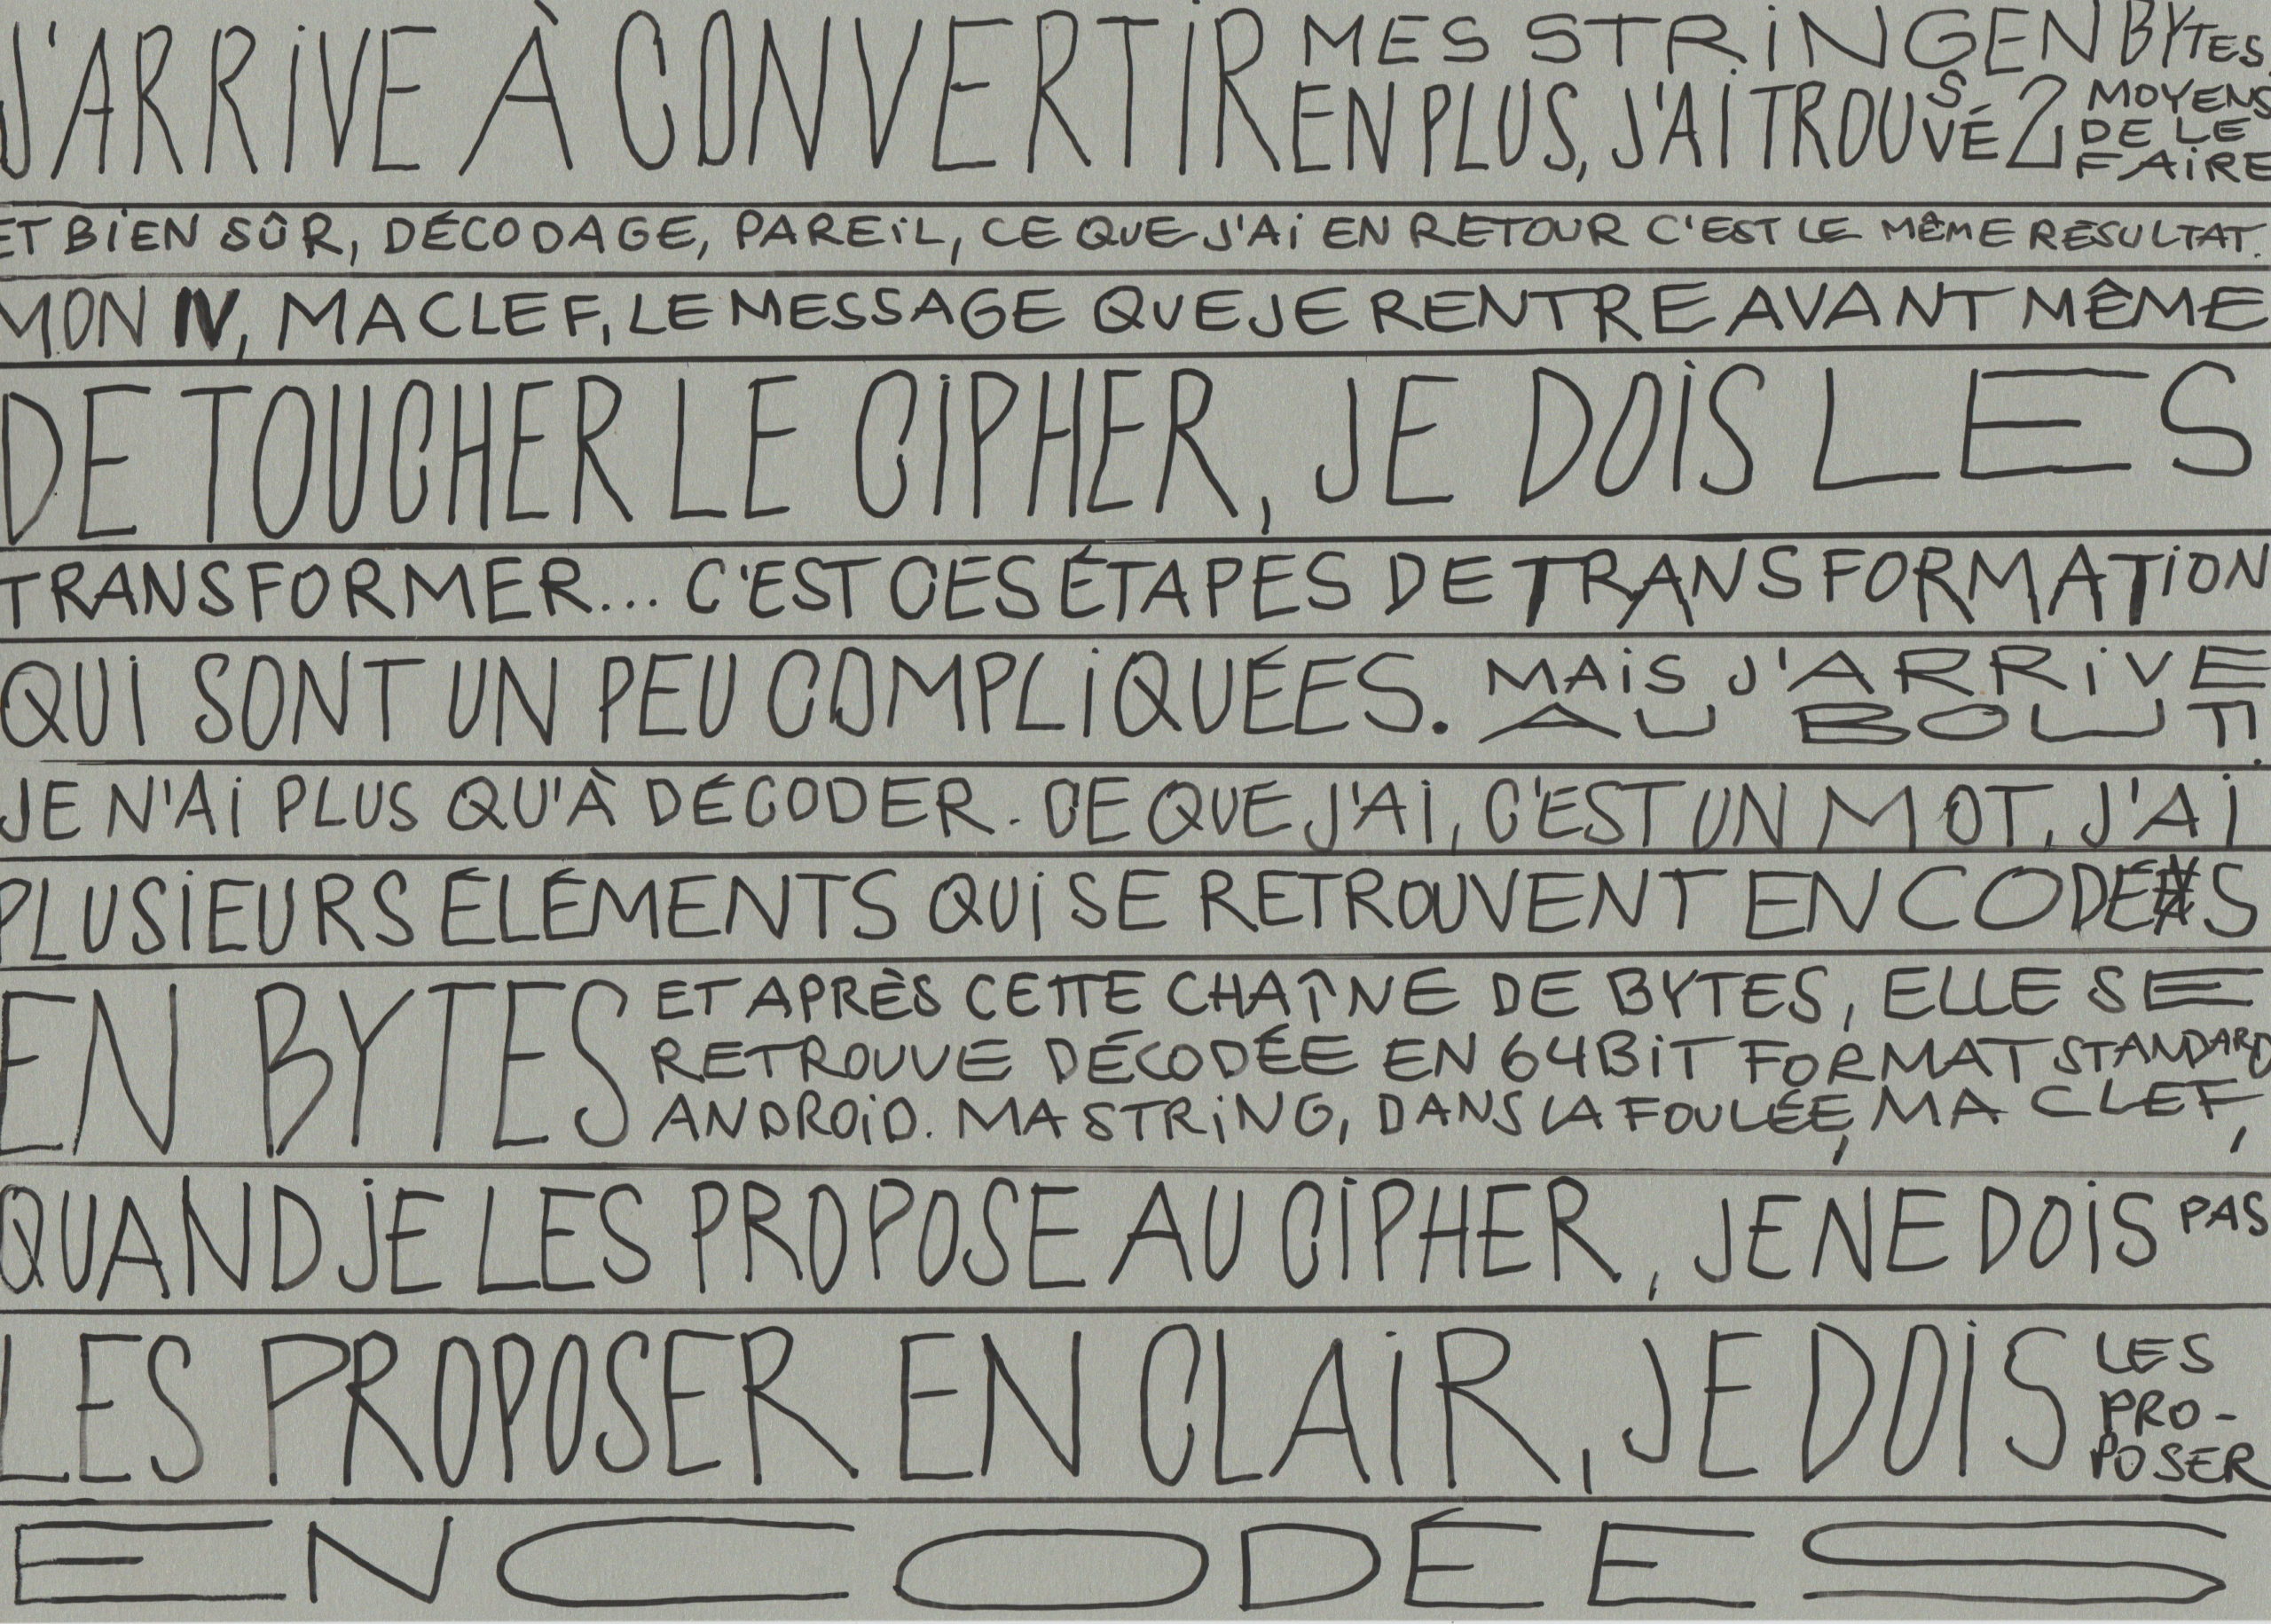 J'ARRIVE À CONVERTIR MES STRING EN BYTES,
EN PLUS, J'AI TROUVÉS 2 MOYENS
DE LE
FAIRE
ET BIEN SÛR, DÉCODAGE, PAREIL, CE QUE J'AI EN RETOUR C'EST LE MÊME RÉSULTAT.
MON IV, MA CLEF, LE MESSAGE QUE JE RENTRE AVANT MÊME
DE TOUCHER LE CIPHER, JE DOIS LES
TRANSFORMER... C'EST CES ÉTAPES DE TRANSFORMATION
QUI SONT UN PEU COMPLIQUÉES. MAIS J'ARRIVE
AU BOUT!
JE N'AI PLUS QU'À DÉCODER. CE QUE J'AI, C'EST UN MOT, J'AI
PLUSIEURS ÉLÉMENTS QUI SE RETROUVENT ENCODÉS
EN BYTES ET APRÈS CETTE CHAÎNE DE BYTES, ELLE SE
RETROUVE DÉCODÉE EN 64BIT FORMAT STANDARD
ANDROID. MA STRING, DANS LA FOULÉE, MA CLEF,
QUAND JE LES PROPOSE AU CIPHER, JE NE DOIS PAS
LES PROPOSER EN CLAIR, JE DOIS LES
PRO-
POSER
ENCODÉES